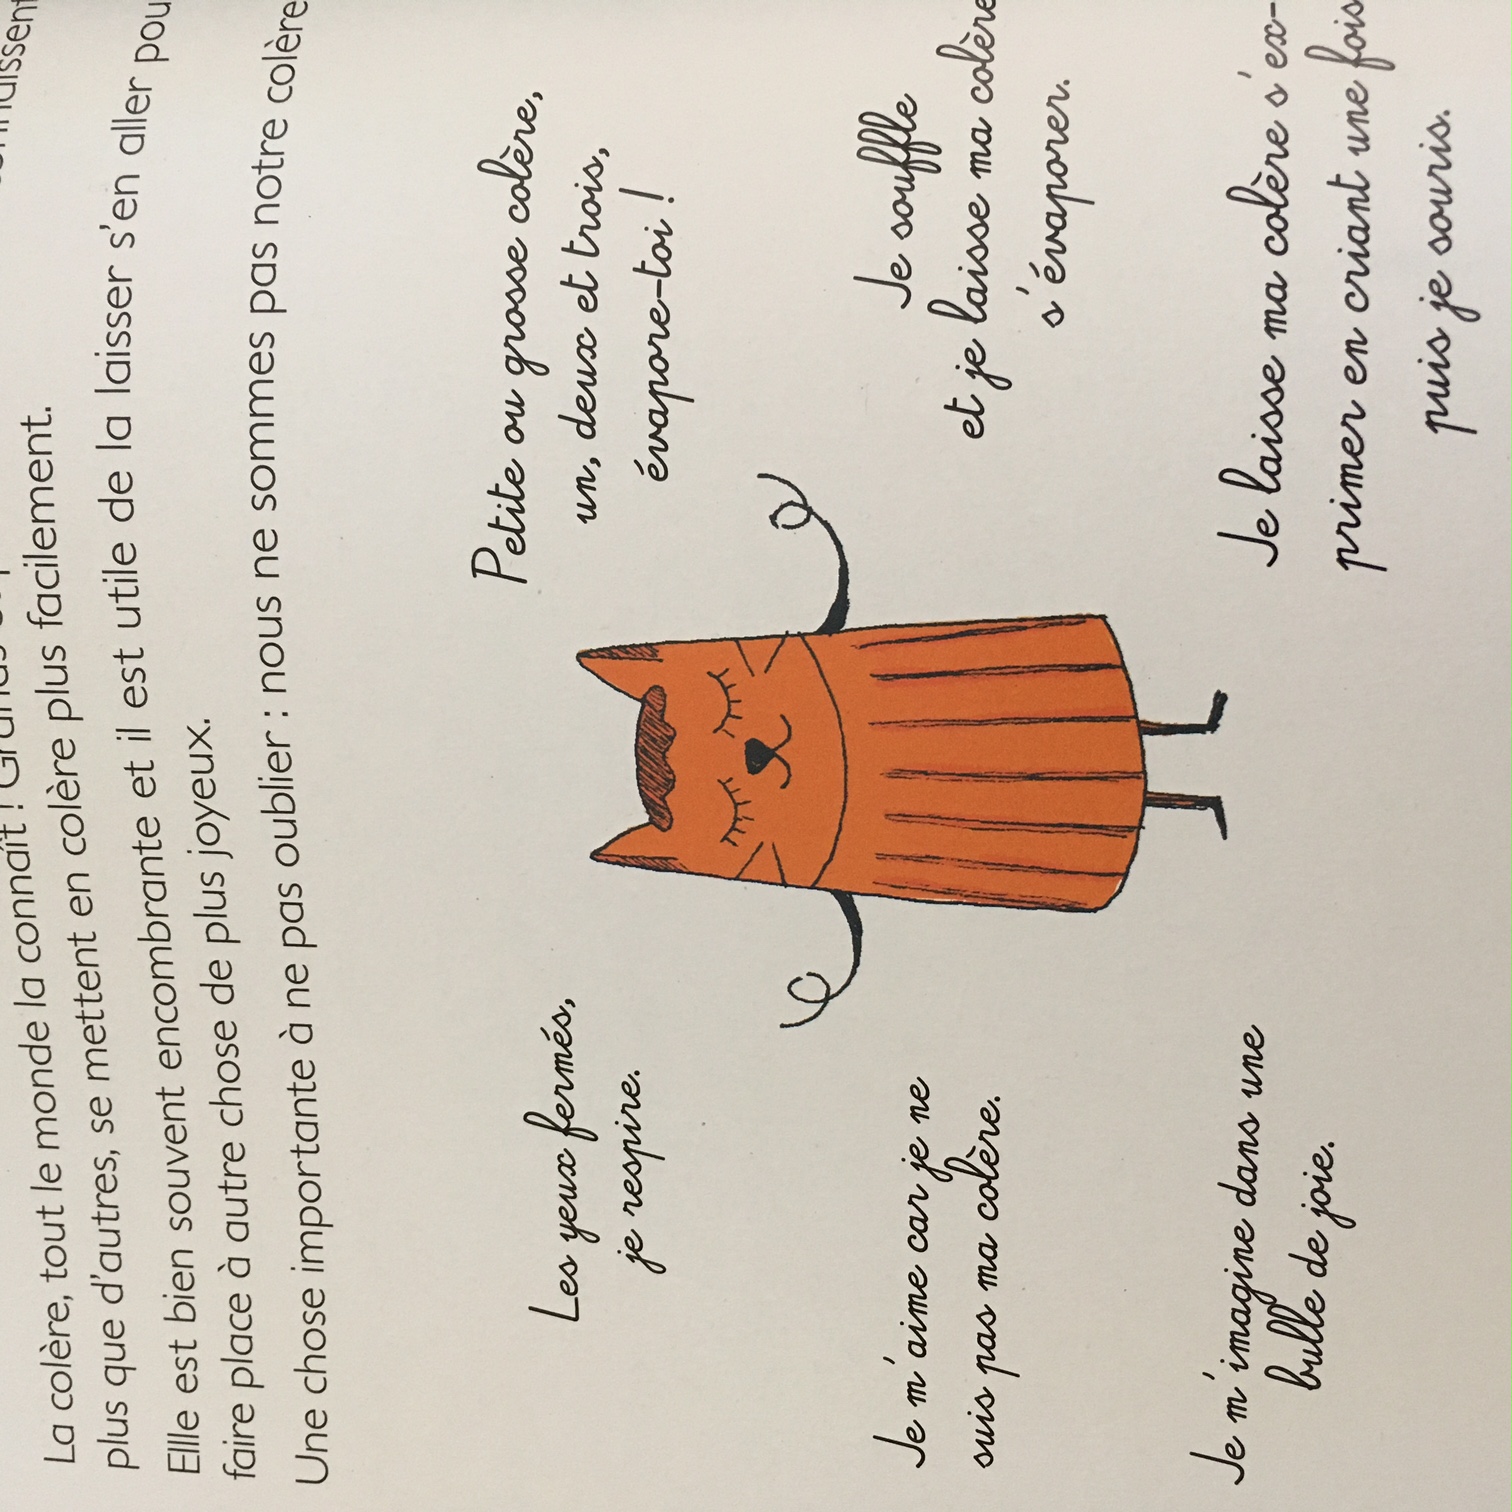 La colère, tout le monde la connaît ! Grands
plus que d'autres, se mettent en colère plus facilement.
Elle est bien souvent encombrante et il est utile de la laisser s'en aller pou
faire place à autre chose de plus joyeux.
Une chose importante à ne pas oublier : nous ne sommes pas notre colère
Les yeux fermés,
je respire.
Petite ou grosse colère,
un, deux et trois,
évapore-toi !
Je m'aime car je ne
suis pas ma colère.
Je souffle
et je laisse ma colère
s'évaporer.
Je m'imagine dans une
bulle de joie.
Je laisse ma colère s'ex-
primer en criant une fois
puis je souris.